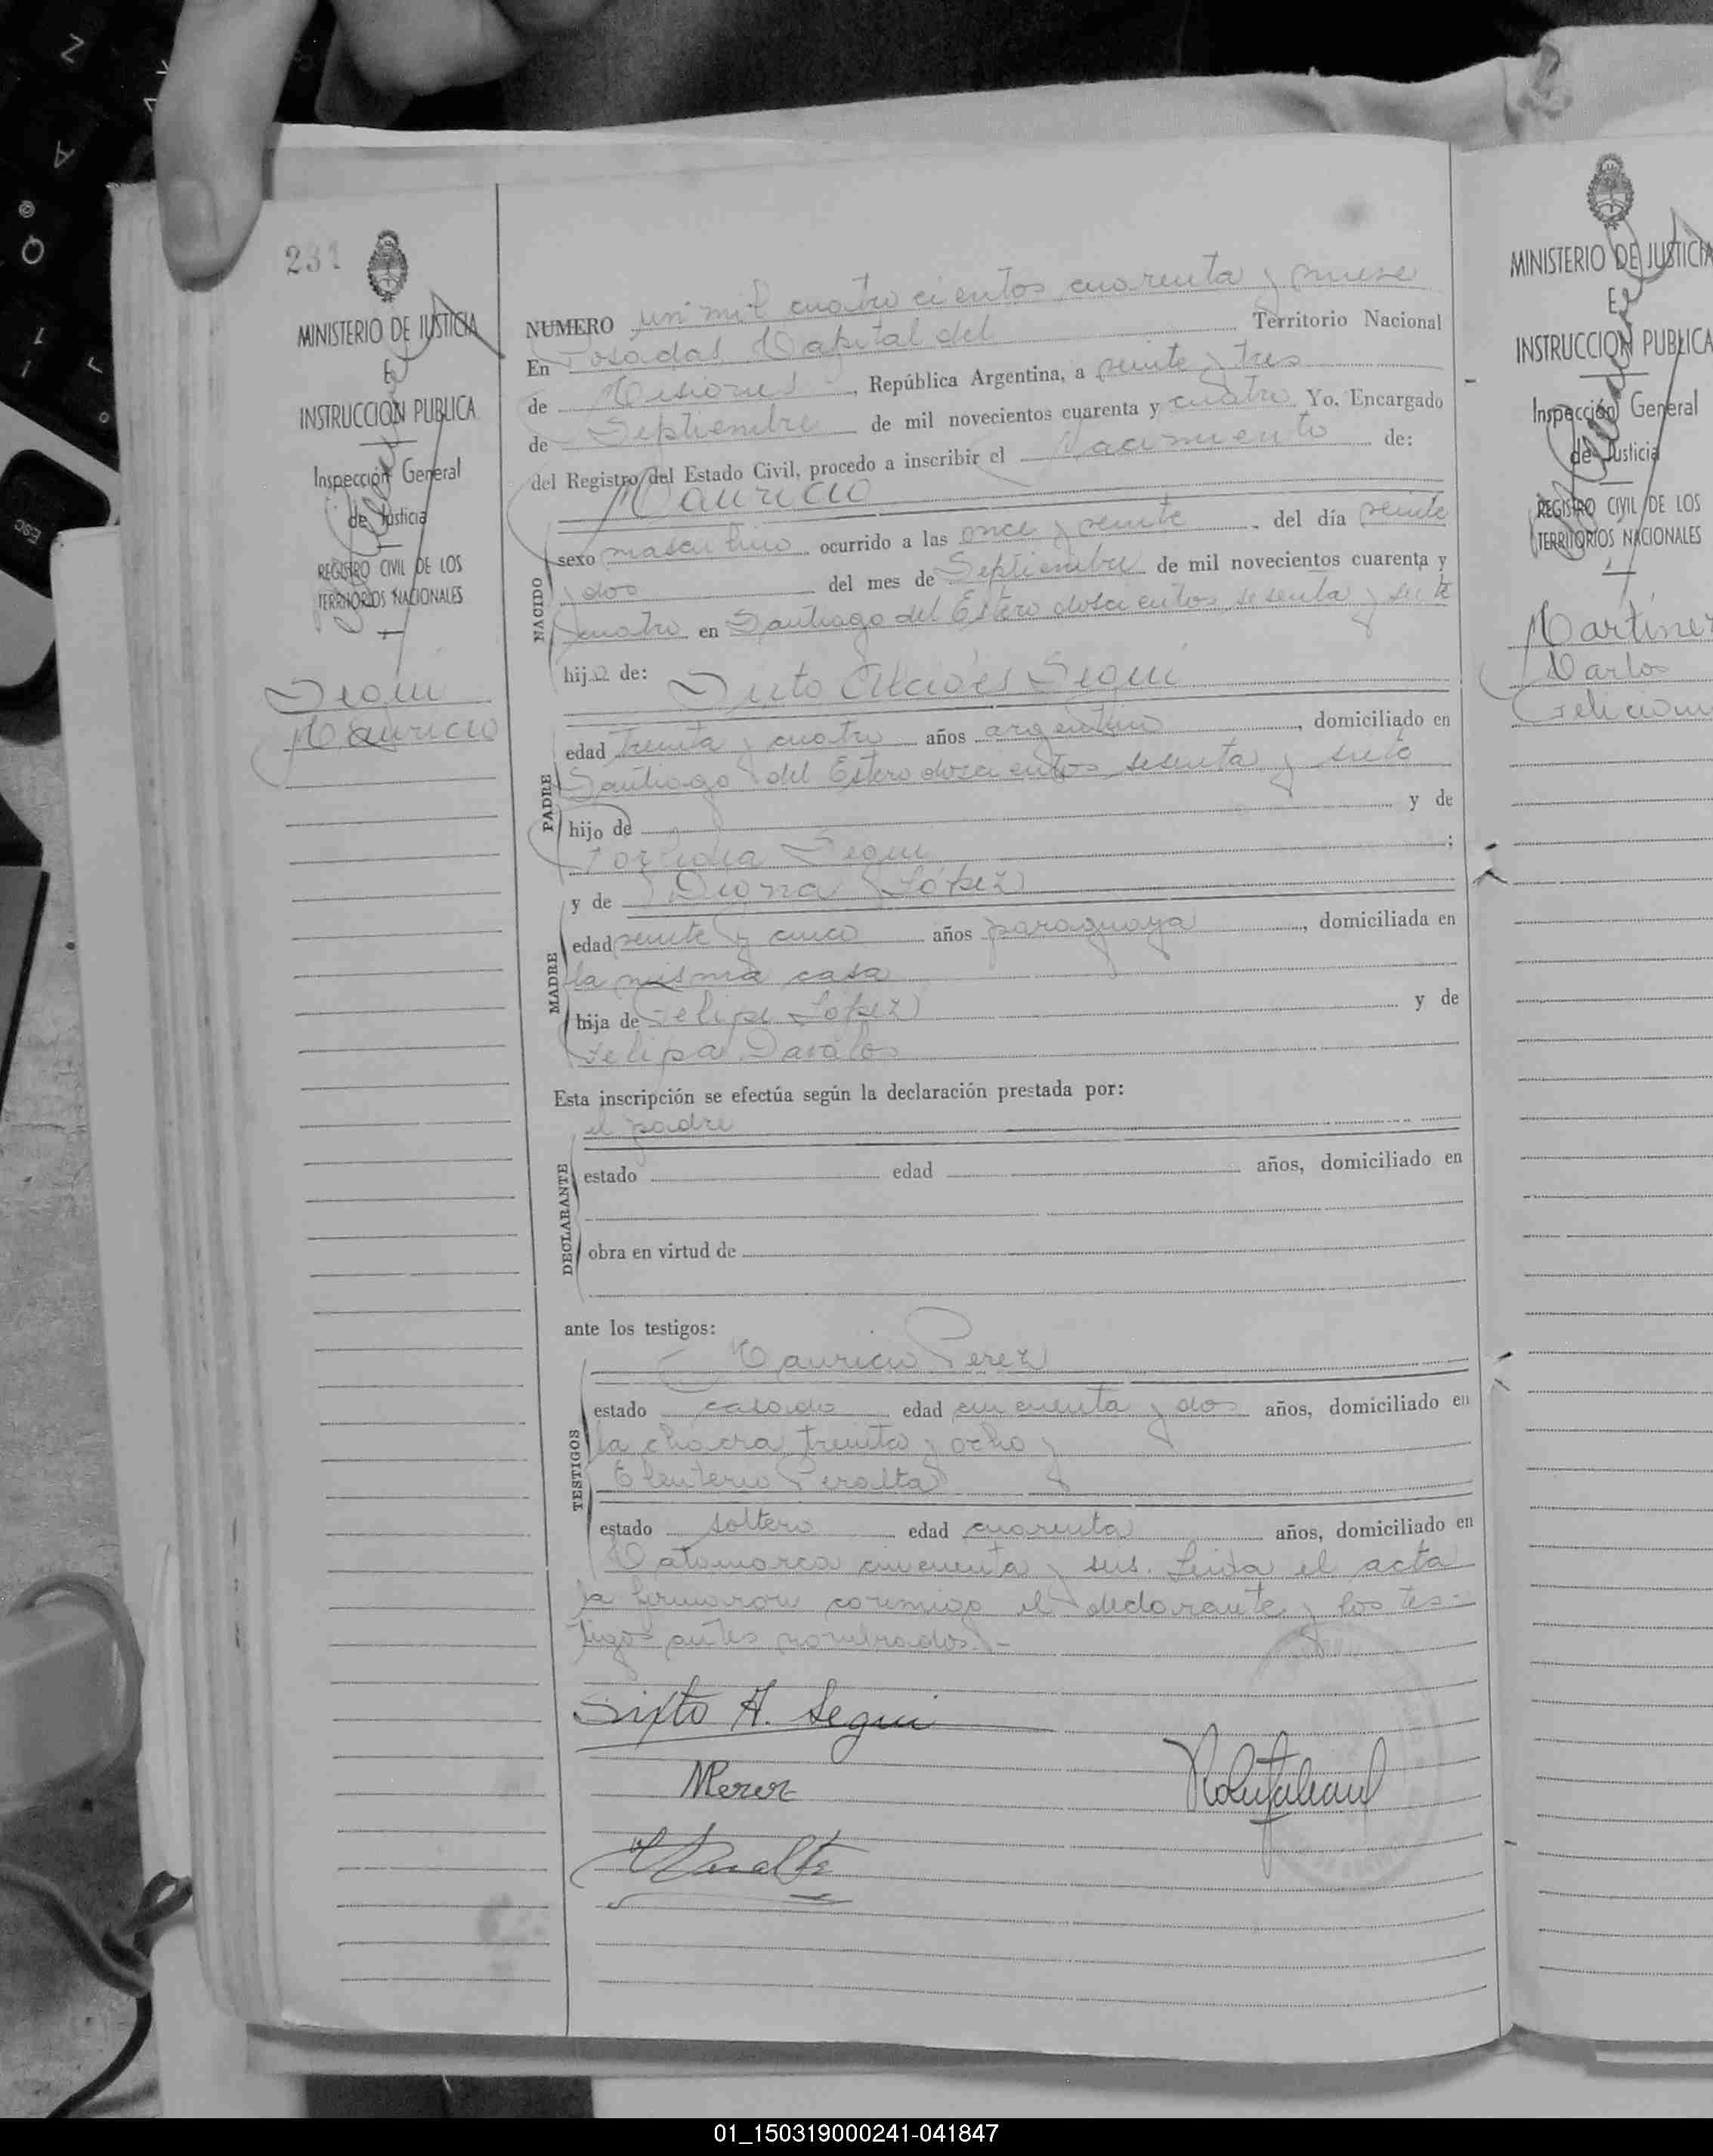 231
MINISTERIO DE JUSTICIA
E
INSTRUCCION PUBLICA
Inspección General
de Justicia
REGISTRO CIVIL DE LOS
TERRITORIOS NACIONALES
Segui
Mauricio
NUMERO un mil cuatrocientos cuarenta y nueve
En Posadas Capital del Territorio Nacional
de Misiones, República Argentina, a veinte y tres
de Septiembre de mil novecientos cuarenta y cuatro Yo, Encargado
del Registro del Estado Civil, procedo a inscribir el Nacimiento de:
Mauricio
NACIDO
sexo masculino ocurrido a las once y veinte del día veinte
y dos del mes de Septiembre de mil novecientos cuarenta y
cuatro en Santiago del Estero doscientos sesenta y siete
hijo de: Sixto Alcides Segui
PADRE
edad treinta y cuatro años argentino, domiciliado en
Santiago del Estero doscientos sesenta y siete
hijo de y de
Segui ;
y de Digna López
MADRE
edad veinte y cinco años paraguaya, domiciliada en
la misma casa
hija de Felipe López y de
Felipa Davalos
Esta inscripción se efectúa según la declaración prestada por:
el padre
DECLARANTE
estado edad años, domiciliado en
obra en virtud de
ante los testigos:
Mauricio Perez
TESTIGOS
estado casado edad cincuenta y dos años, domiciliado en
la chacra treinta y ocho y
Eleuterio Peralta
estado soltero edad cuarenta años, domiciliado en
Catamarca cincuenta y seis. Leida el acta
la firmaron conmigo el declarante y los tes-
tigos antes nombrados.-
Sixto A. Segui
MPerez
EPeralta
MINISTERIO DE JUSTICIA
E
INSTRUCCION PUBLICA
Inspección General
de Justicia
REGISTRO CIVIL DE LOS
TERRITORIOS NACIONALES
Martinez
Carlos
01_150319000241-041847